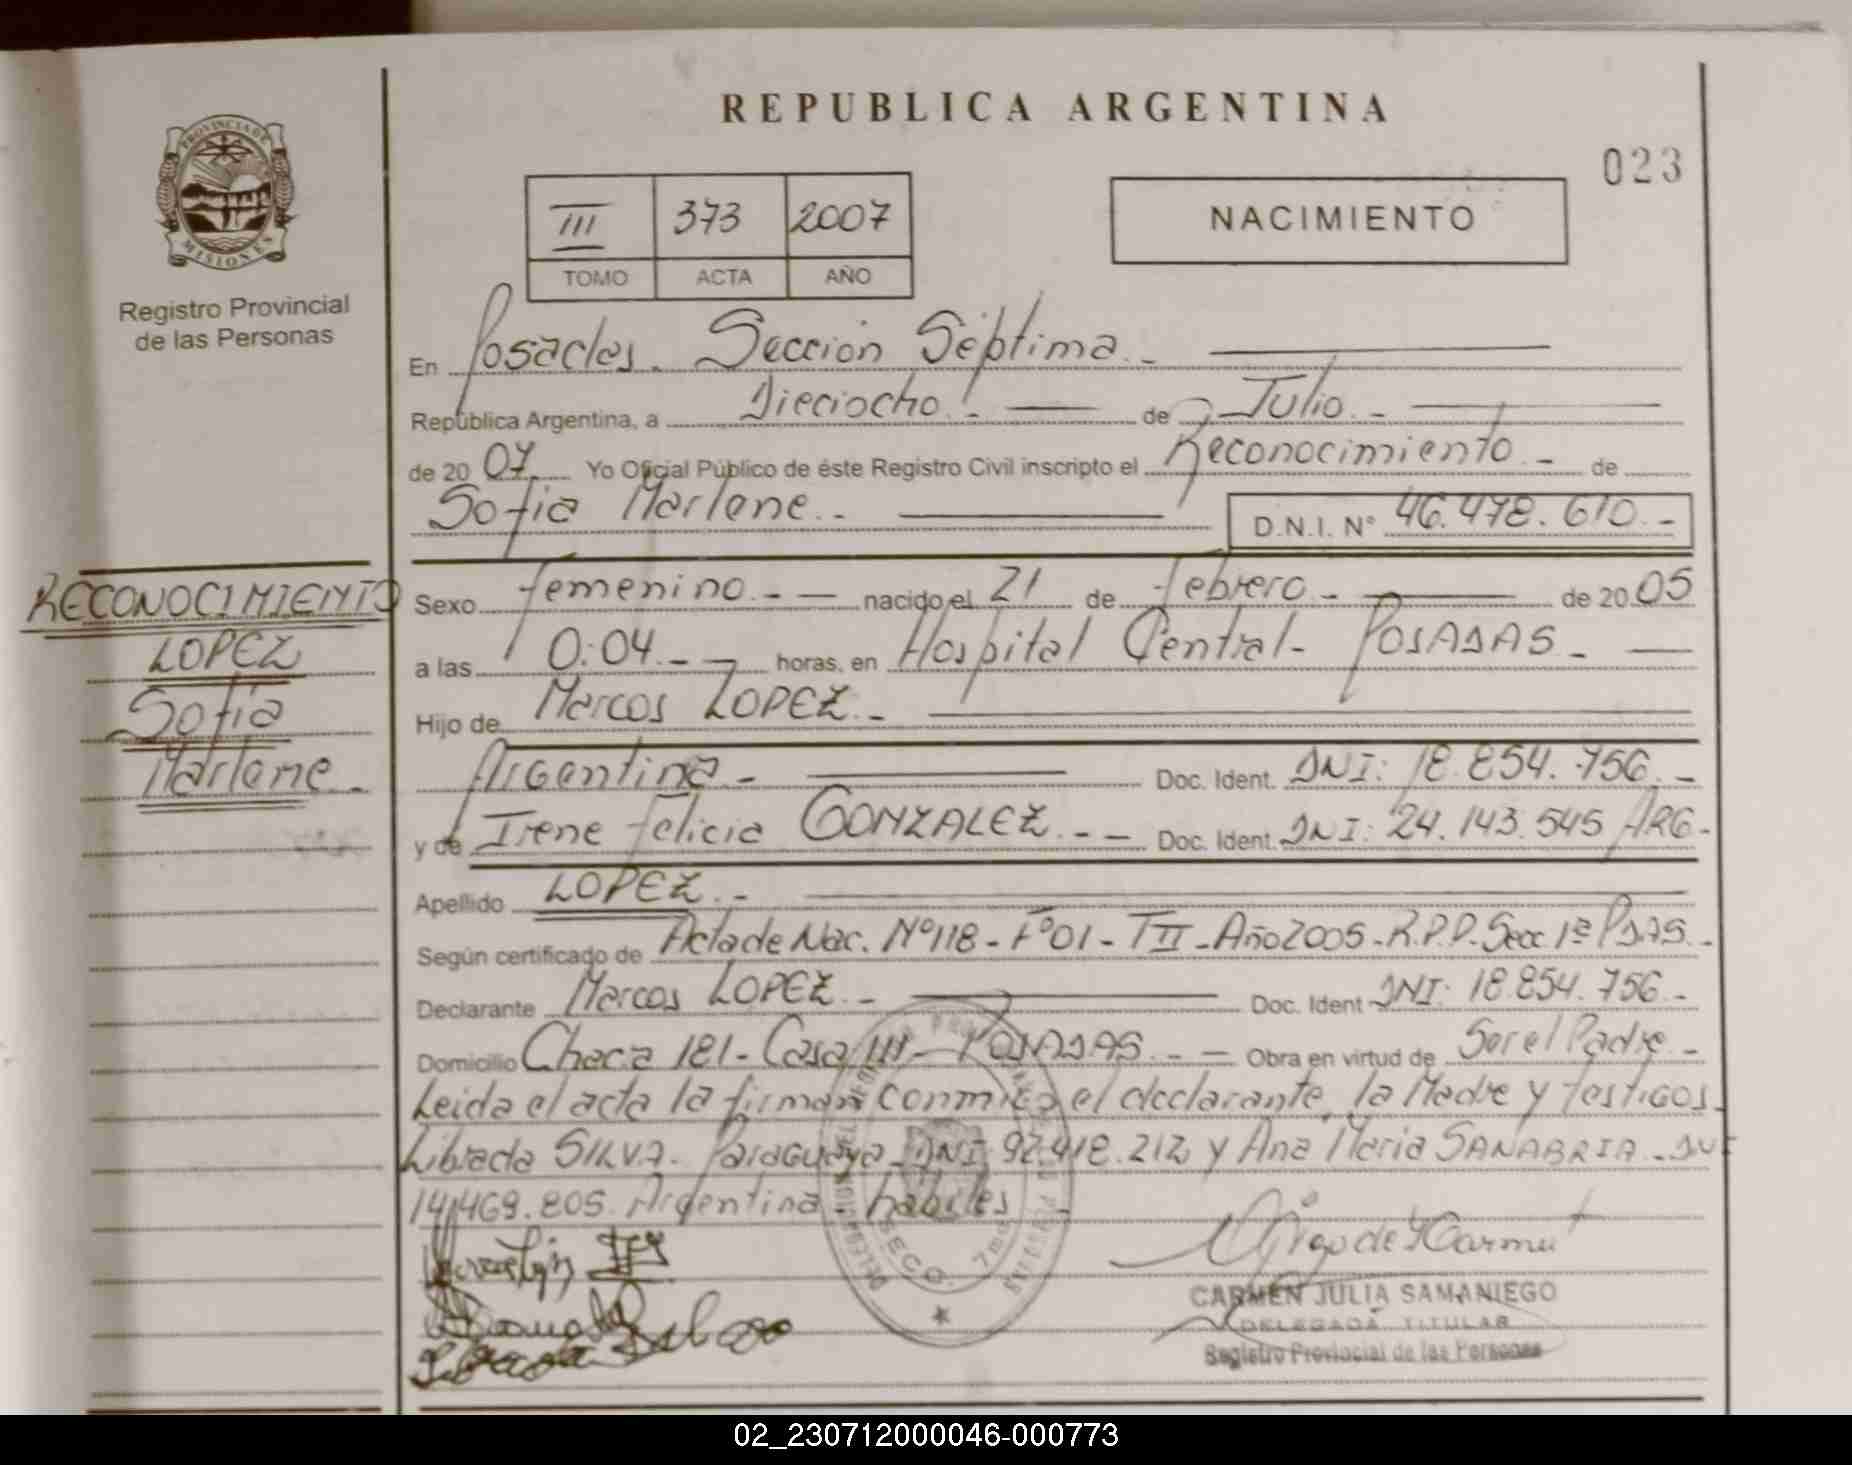 REPUBLICA ARGENTINA
023
PROVINCIA DE MISIONES
Registro Provincial
de las Personas
III 373 2007
TOMO ACTA AÑO
NACIMIENTO
En Posadas. Sección Séptima.-
República Argentina, a Dieciocho.- de Julio.-
de 2007. Yo Oficial Público de éste Registro Civil inscripto el Reconocimiento.- de
Sofia Marlene.- D.N.I. N° 46.478.610.-
RECONOCIMIENTO
LOPEZ
Sofia
Marlene.-
Sexo femenino.-- nacido el 21 de febrero.- de 2005
a las 0:04.-- horas, en Hospital Central- POSADAS.-
Hijo de Marcos LOPEZ.-
Argentina.- Doc. Ident. DNI: 18.854.756.-
y de Irene Felicia GONZALEZ.-- Doc. Ident. DNI: 24.143.545 ARG.-
Apellido LOPEZ.-
Según certificado de Acta de Nac. Nº118- Fº01- TII- Año2005- R.P.P. Secc. 1ª PDAS.-
Declarante Marcos LOPEZ.- Doc. Ident DNI: 18.854.756.-
Domicilio Chaca 181- Casa POSADAS.-- Obra en virtud de Ser el Padre.-
Leida el acta la firman conmigo el declarante, la Madre y testigos.
Librada SILVA. Paraguaya- DNI: 92.418.212 y Ana Maria SANABRIA.- DNI
14.469.805. Argentina- habiles
SECC. 7ma
CARMEN JULIA SAMANIEGO
DELEGADA TITULAR
Registro Provincial de las Personas
02_230712000046-000773